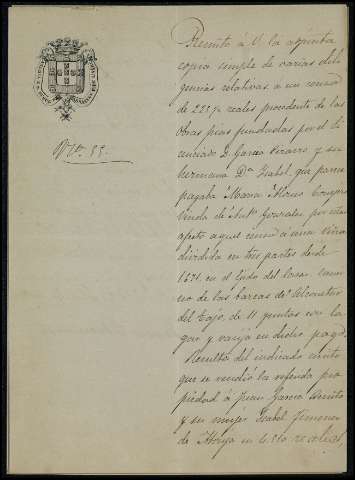 Nº 55.
Remito á V. la adjunta
copia simple de varias dili
gencias relativas a un censo
de 222 ½ reales procedente de las
obras pias fundadas por el li
cenciado D. Garcia Pizarro y su
hermana Dª Isabel, que parece
pagaba Maria Alonso
viuda de Antº Gonzalez por estar
afecto aquel censo á una viña
dividida en tres partes desde
1671, en el lado del
no de las barcas de Alconetar
del Tajo, de 11 yuntas con la
gar y vasija en dicho pago.
Resulta del indicado escrito
que se vendió la referida pro
piedad á Juan Garcia Benito
y su mujer Isabel Jimenez
de Abrego en 6.250 reales